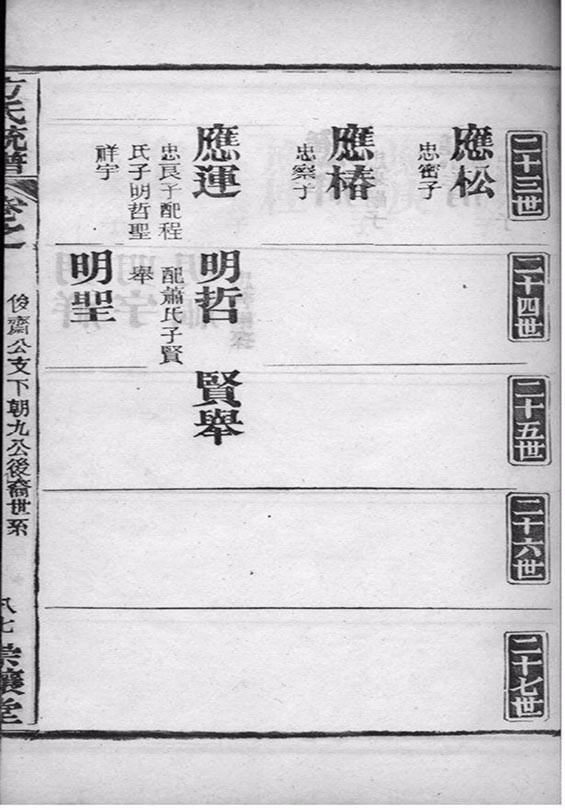 二十三世
二十四世
二十五世
二十六世
二十七世
應松
忠密子
應椿
忠察子
應運
忠良子配程
氏子明哲聖
祥宇
明哲
配蕭氏子賢
舉
明聖
賢舉
方氏統譜
卷之一
俊齋公支下朝九公後裔世系
八七
崇讓堂